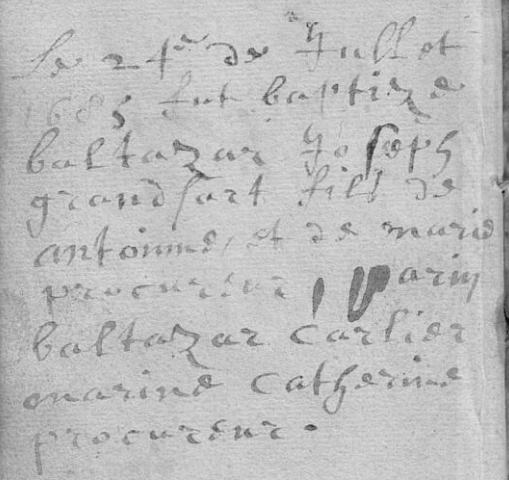 Le 24e de Jullet
1685 fut baptize
baltazar Joseph
grandsart fils de
antoinne, et de marie
procureur, parin
baltazar carlier
marine catherine
procureur.